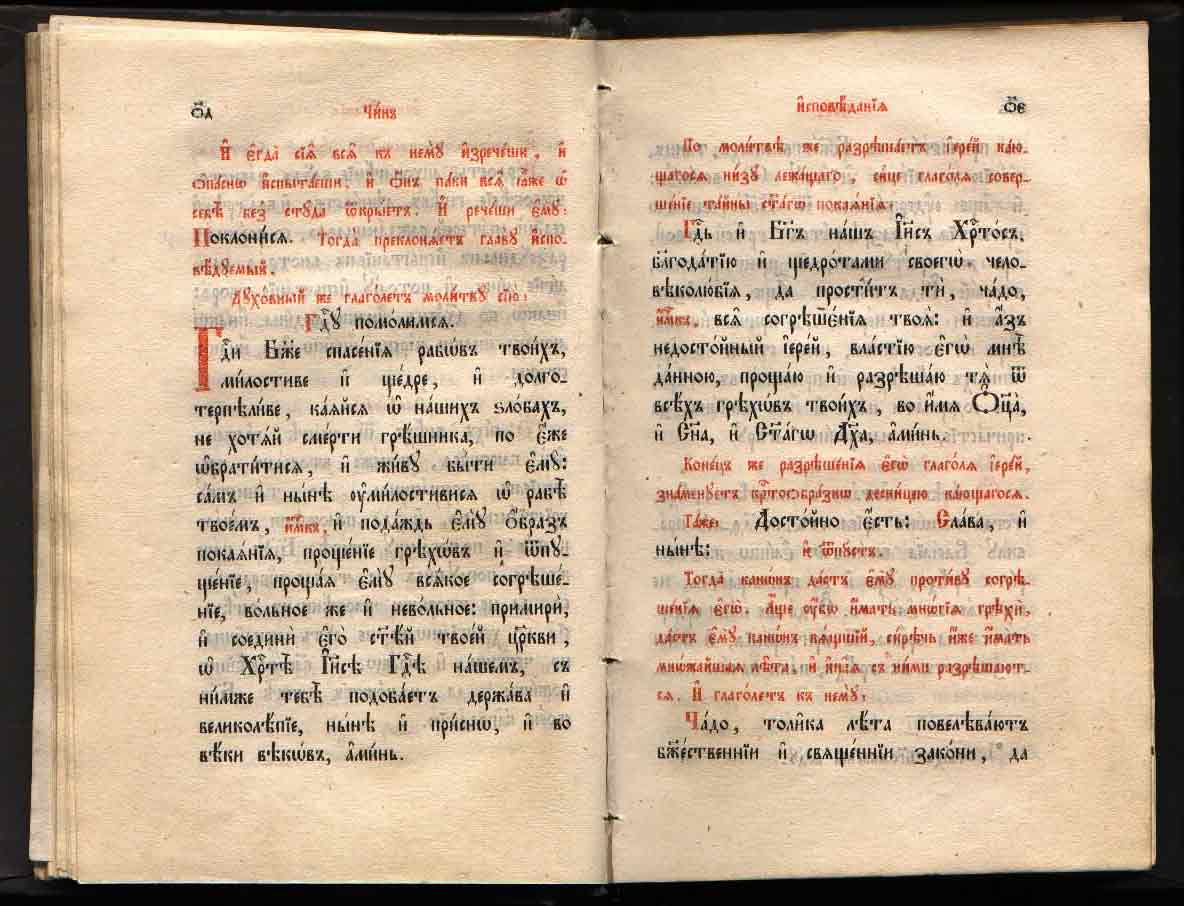 о҃д
Чи́нъ
И҆ є҆гда̀ сїѧ̑ всѧ̑ къ немꙋ̀ и҆зрече́ши, и҆
ѻ҆па́снѡ и҆спыта́еши. и҆ ѻ҆́нъ па́ки всѧ̑ ꙗ҆̀же ѡ҆
себѣ̀ без̾ стꙋда̀ ѿкры́етъ. И҆ рече́ши є҆мꙋ̀:
Поклони́сѧ. Тогда̀ преклонѧ́етъ главꙋ̀ и҆спо-
вѣ́дꙋемый.
Дꙋхо́вный же глаго́летъ моли́твꙋ сїю̀:
Гдⷭ҇ꙋ помо́лимсѧ.
Гдⷭ҇и Бж҃е спасе́нїѧ рабѡ́въ твои́хъ,
ми́лостиве и҆ ще́дре, и҆ долго-
терпѣли́ве, ка́ѧйсѧ ѡ҆ на́шихъ ѕло́бахъ,
не хотѧ́й сме́рти грѣ́шника, по є҆́же
ѡ҆брати́тисѧ, и҆ жи́вꙋ бы́ти є҆мꙋ̀:
са́мъ и҆ ны́нѣ ᲂу҆ми́лостивисѧ ѡ҆ рабѣ̀
твое́мъ, и҆́м҃къ, и҆ пода́ждь є҆мꙋ̀ ѻ҆́бразъ
покаѧ́нїѧ, проще́нїе грѣхѡ́въ и҆ ѿпꙋ-
ще́нїе, проща́ѧ є҆мꙋ̀ всѧ́кое согрѣше́-
нїе, во́льное же и҆ нево́льное: примирѝ,
и҆ соединѝ є҆го̀ ст҃ѣ́й твое́й цр҃кви,
ѡ҆ Хрⷭ҇тѣ̀ І҆и҃сѣ Гдⷭ҇ѣ на́шемъ, съ
ни́мже тебѣ̀ подоба́етъ держа́ва и҆
великолѣ́пїе, ны́нѣ и҆ при́снѡ, и҆ во
вѣ́ки вѣкѡ́въ, а҆ми́нь.
и҆сповѣ́данїѧ
о҃є
По моли́твѣ же разрѣша́етъ і҆ере́й ка́ю-
щагосѧ ни́зꙋ лежа́щаго, си́це глаго́лѧ совер-
ше́нїе та́йны ст҃а́гѡ покаѧ́нїѧ:
Гдⷭ҇ь и҆ Бг҃ъ на́шъ І҆и҃съ Хрⷭ҇то́съ,
благода́тїю и҆ щедро́тами своегѡ̀ чело-
вѣколю́бїѧ, да прости́тъ тѝ, ча́до,
и҆́м҃къ, всѧ̑ согрѣшє́нїѧ твоѧ̑: и҆ а҆́зъ
недосто́йный і҆ере́й, вла́стїю є҆гѡ̀ мнѣ̀
да́нною, проща́ю и҆ разрѣша́ю тѧ̀ ѿ
всѣ́хъ грѣхѡ́въ твои́хъ, во и҆́мѧ Ѻ҆ц҃а̀,
и҆ Сн҃а, и҆ Ст҃а́гѡ Дх҃а, а҆ми́нь.
Коне́цъ же разрѣше́нїѧ є҆гѡ̀ глаго́лѧ і҆ере́й,
зна́менꙋетъ крⷭ҇тоѻбра́знѡ десни́цею ка́ющагосѧ.
Та́же: Досто́йно є҆́сть: Сла́ва, и҆
ны́нѣ: и҆ ѿпꙋ́стъ.
Тогда̀ канѡ́нъ да́стъ є҆мꙋ̀ проти́вꙋ согрѣ-
ше́нїѧ є҆гѡ̀. А҆́ще ᲂу҆́бѡ и҆́мать мнѡ́гїѧ грѣхѝ,
да́стъ є҆мꙋ̀ канѡ́нъ вѧ́щшїй, си́рѣчь и҆́же и҆́мать
множа́йшаѧ лѣ̑та, и҆ и҆на̑ѧ съ ни́ми разрѣша́ют-
сѧ. И҆ глаго́летъ къ немꙋ̀:
Ча́до, толи̑ка лѣ̑та повелѣва́ютъ
бж҃е́ственнїи и҆ свѧще́ннїи зако́ни, да